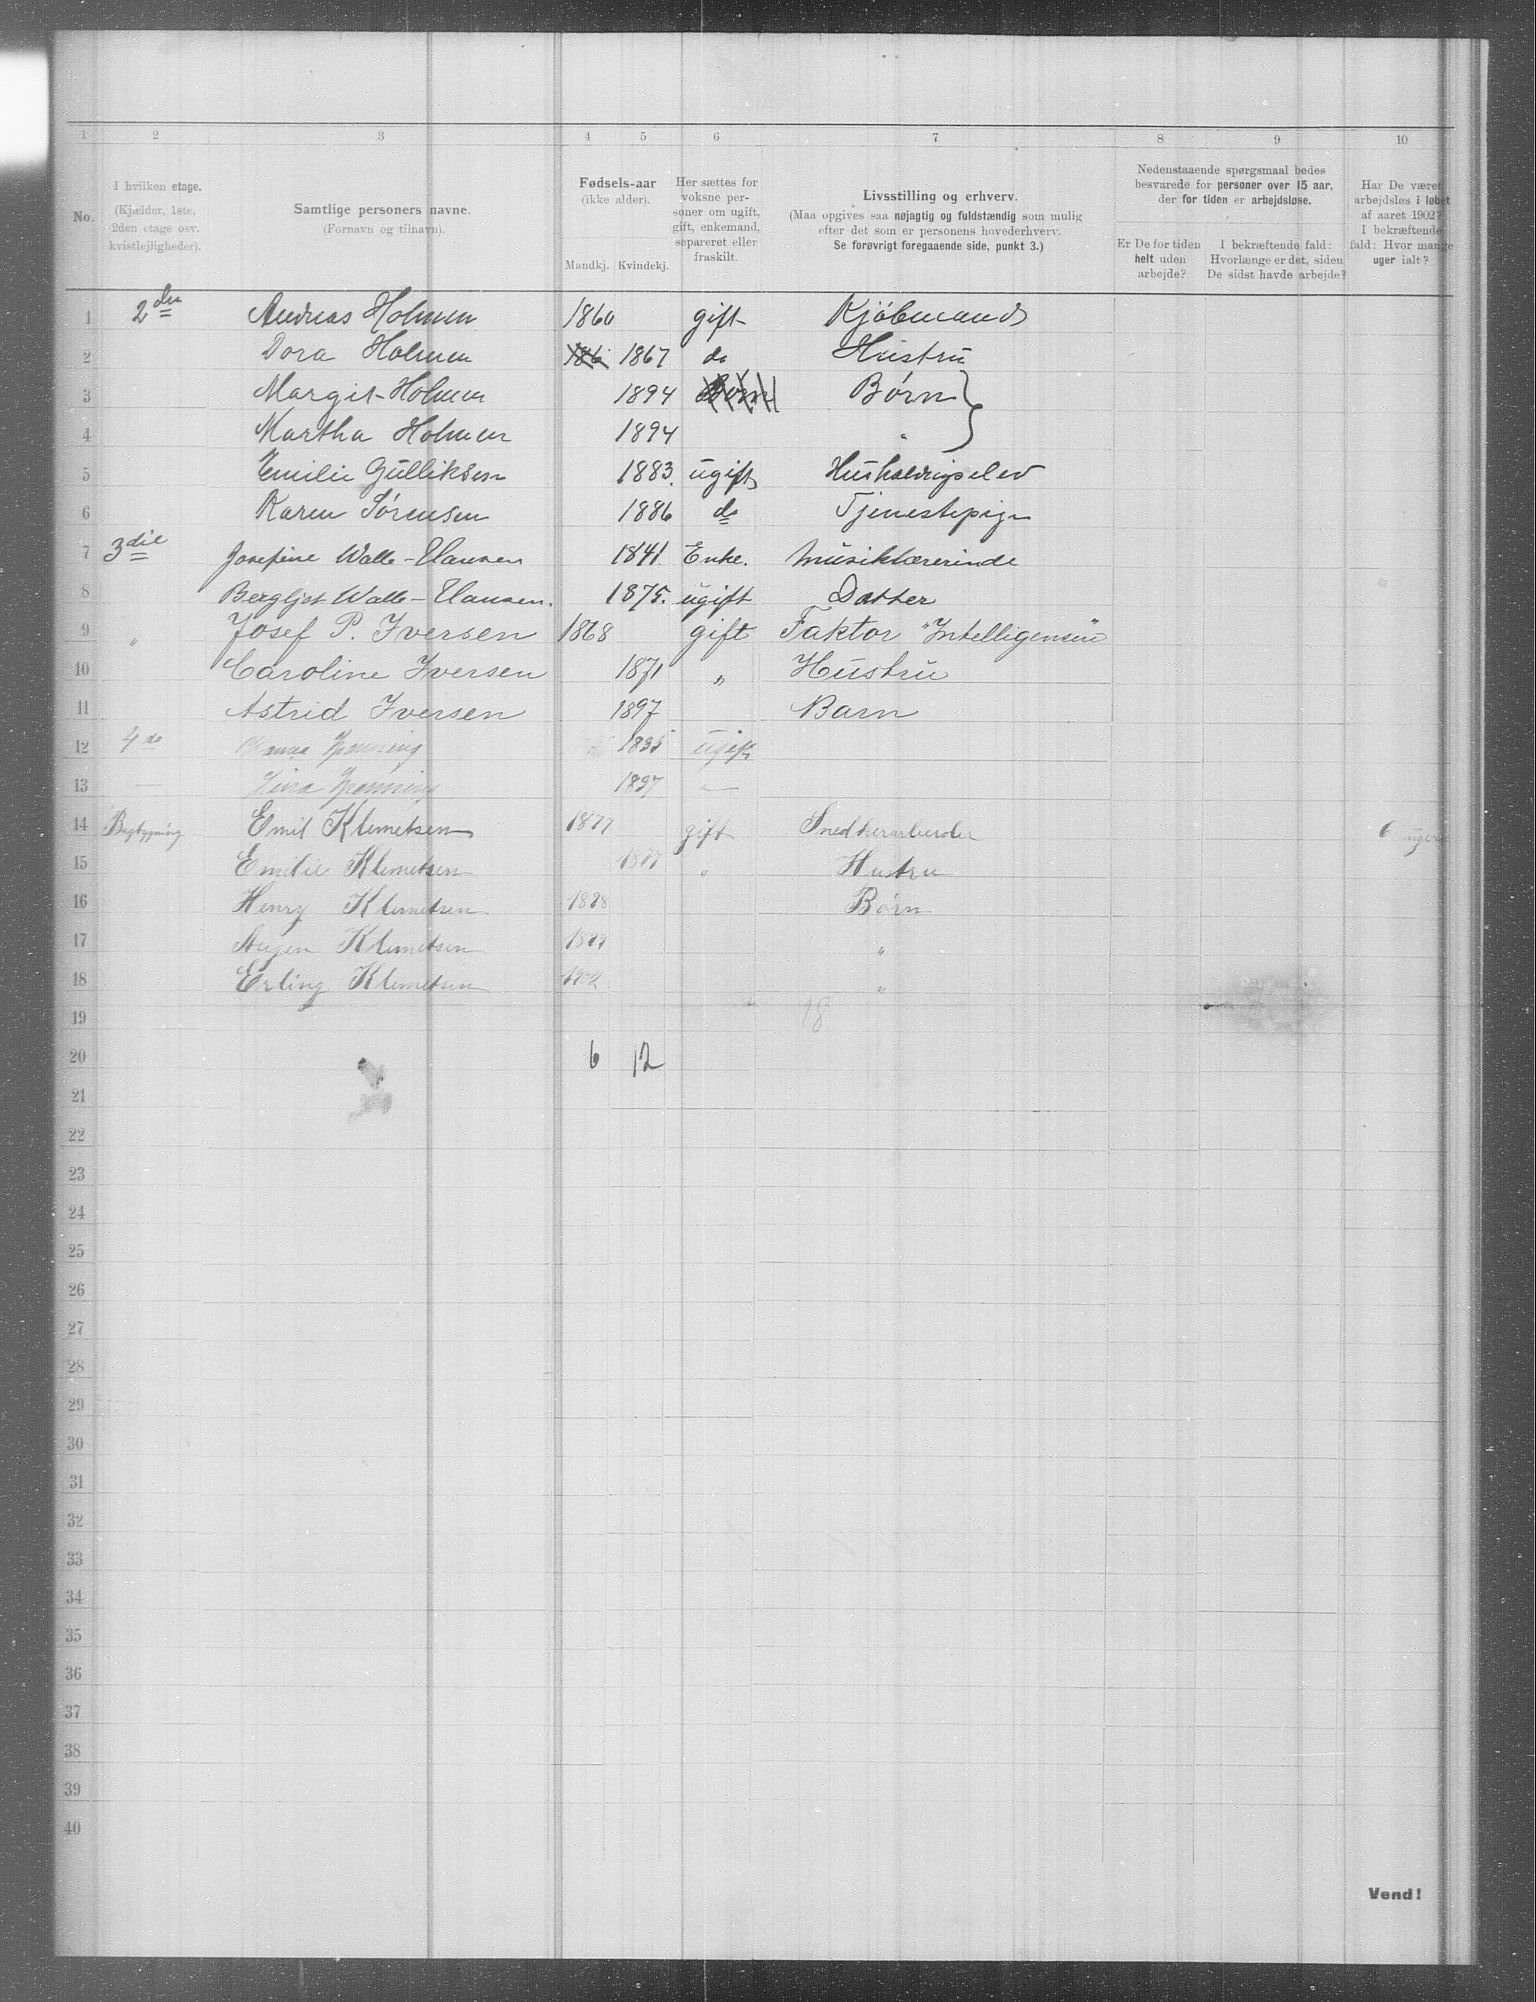 1 2 3 4 5 6 7 8 9 10
No.
I hvilken etage.
(Kjælder, 1ste,
2den etage osv.
kvistlejligheder).
Samtlige personers navne.
(Fornavn og tilnavn).
Fødsels-aar
(ikke alder).
Mandkj. Kvindekj.
Her sættes for
voksne per-
soner om ugift,
gift, enkemand,
separeret eller
fraskilt.
Livsstilling og erhverv.
(Maa opgives saa nøjagtig og fuldstændig som mulig
efter det som er personens hovederhverv.
Se forøvrigt foregaaende side, punkt 3.)
Nedenstaaende spørgsmaal bedes
besvarede for personer over 15 aar,
der for tiden er arbejdsløse.
Er De for tiden
helt uden
arbejde?
I bekræftende fald:
Hvorlænge er det, siden
De sidst havde arbejde?
Har De været
arbejdsløs i løbet
af aaret 1902?
I bekræftende
fald: Hvor mange
uger ialt?
1 2den Andreas Holmen 1860 gift Kjøbmand
2 Dora Holmen 186 1867 do Hustru
3 Margit Holmen 1894 Børn Børn
4 Martha Holmen 1894 "
5 Emilie Gulliksen 1883. ugift Husholdningselev
6 Karen Sørensen 1886 do Tjenestepige
7 3die Josefine Walle-Hansen 1841. Enke. Musiklærerinde
8 Bergljot Walle-Hansen. 1875. ugift Datter
9 " Josef P. Iversen 1868 gift Faktor "Intelligensen"
10 Caroline Iversen 1871 " Hustru
11 Astrid Iversen 1897 Barn
12 4de ugift
13
14 Bagbygning Emil Klemetsen 1877 gift Snedkerarbeider 6 uger
15 Emilie Klemetsen 1877 " Hustru
16 Henry Klemetsen Børn
17 Klemetsen "
18 Erling Klemetsen 1902 "
19 18
20 6 12
21
22
23
24
25
26
27
28
29
30
31
32
33
34
35
36
37
38
39
40
Vend!